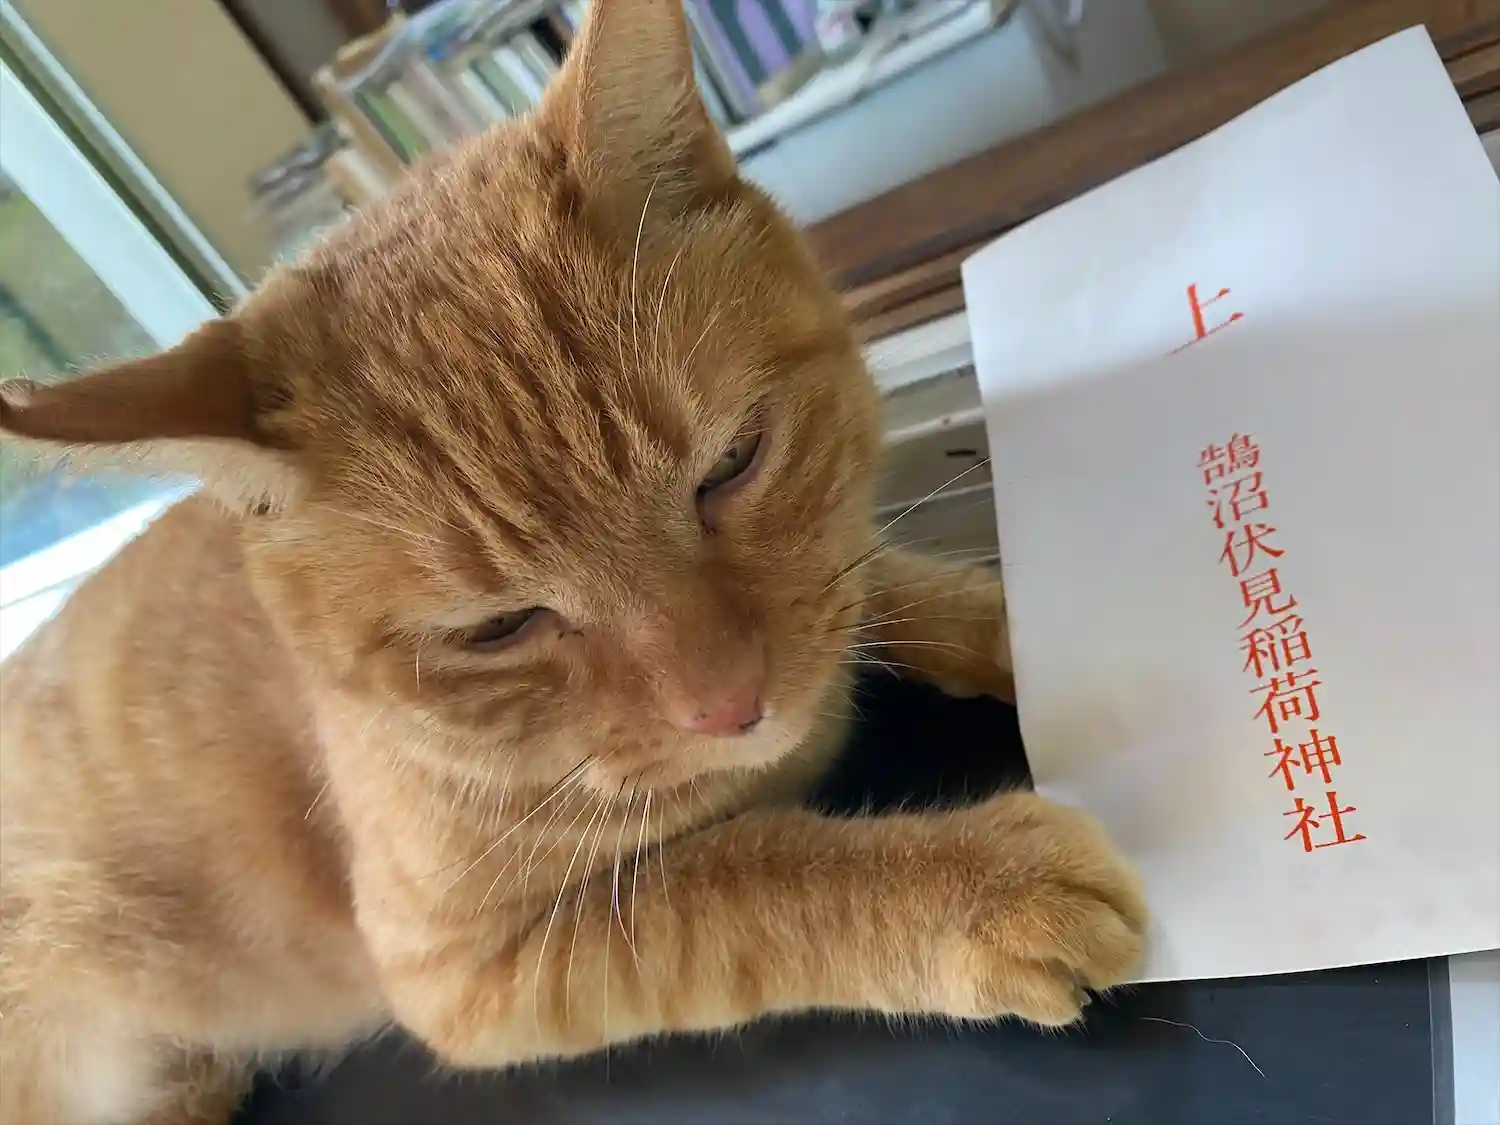 上
鵠沼伏見稲荷神社